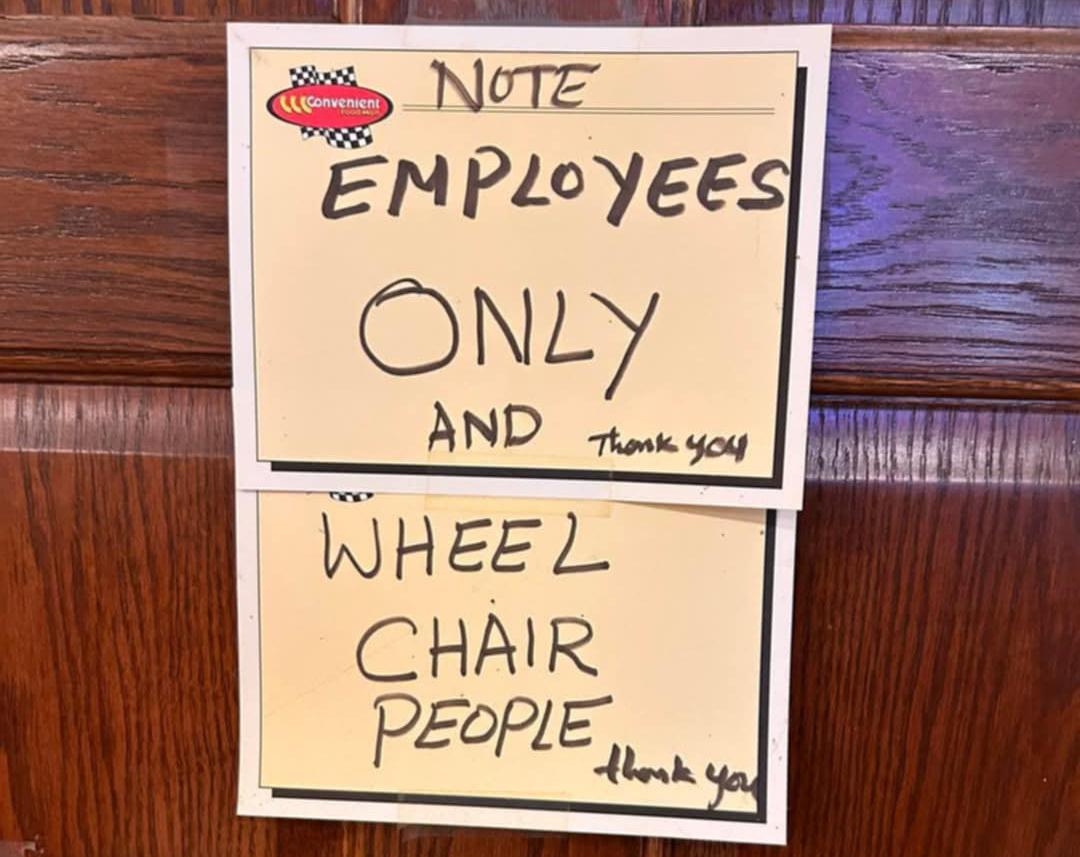 NOTE
Convenient
FOOD MART
EMPLOYEES
ONLY
AND Thank you
WHEEL
CHAIR
PEOPLE
thank you